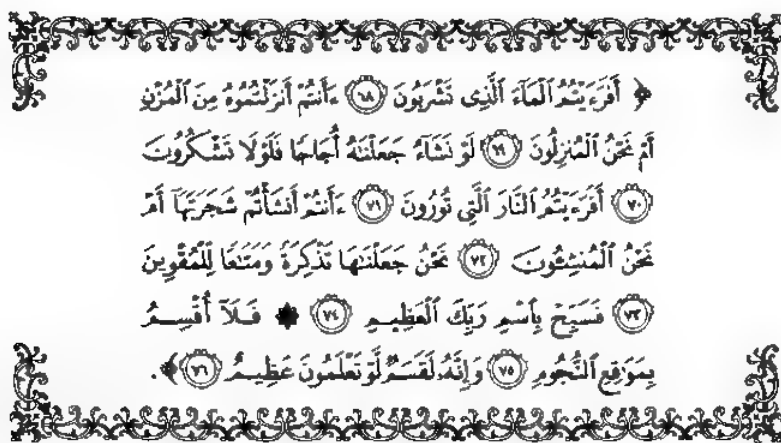 ﴿ أَفَرَءَيْتُمُ ٱلْمَآءَ ٱلَّذِى تَشْرَبُونَ ٦٨ ءَأَنتُمْ أَنزَلْتُمُوهُ مِنَ ٱلْمُزْنِ
أَمْ نَحْنُ ٱلْمُنزِلُونَ ٦٩ لَوْ نَشَآءُ جَعَلْنَٰهُ أُجَاجًا فَلَوْلَا تَشْكُرُونَ
٧٠ أَفَرَءَيْتُمُ ٱلنَّارَ ٱلَّتِى تُورُونَ ٧١ ءَأَنتُمْ أَنشَأْتُمْ شَجَرَتَهَآ أَمْ
نَحْنُ ٱلْمُنشِـُٔونَ ٧٢ نَحْنُ جَعَلْنَٰهَا تَذْكِرَةً وَمَتَٰعًا لِّلْمُقْوِينَ
٧٣ فَسَبِّحْ بِٱسْمِ رَبِّكَ ٱلْعَظِيمِ ٧٤ ۞ فَلَآ أُقْسِمُ
بِمَوَٰقِعِ ٱلنُّجُومِ ٧٥ وَإِنَّهُۥ لَقَسَمٌ لَّوْ تَعْلَمُونَ عَظِيمٌ ٧٦ ﴾.